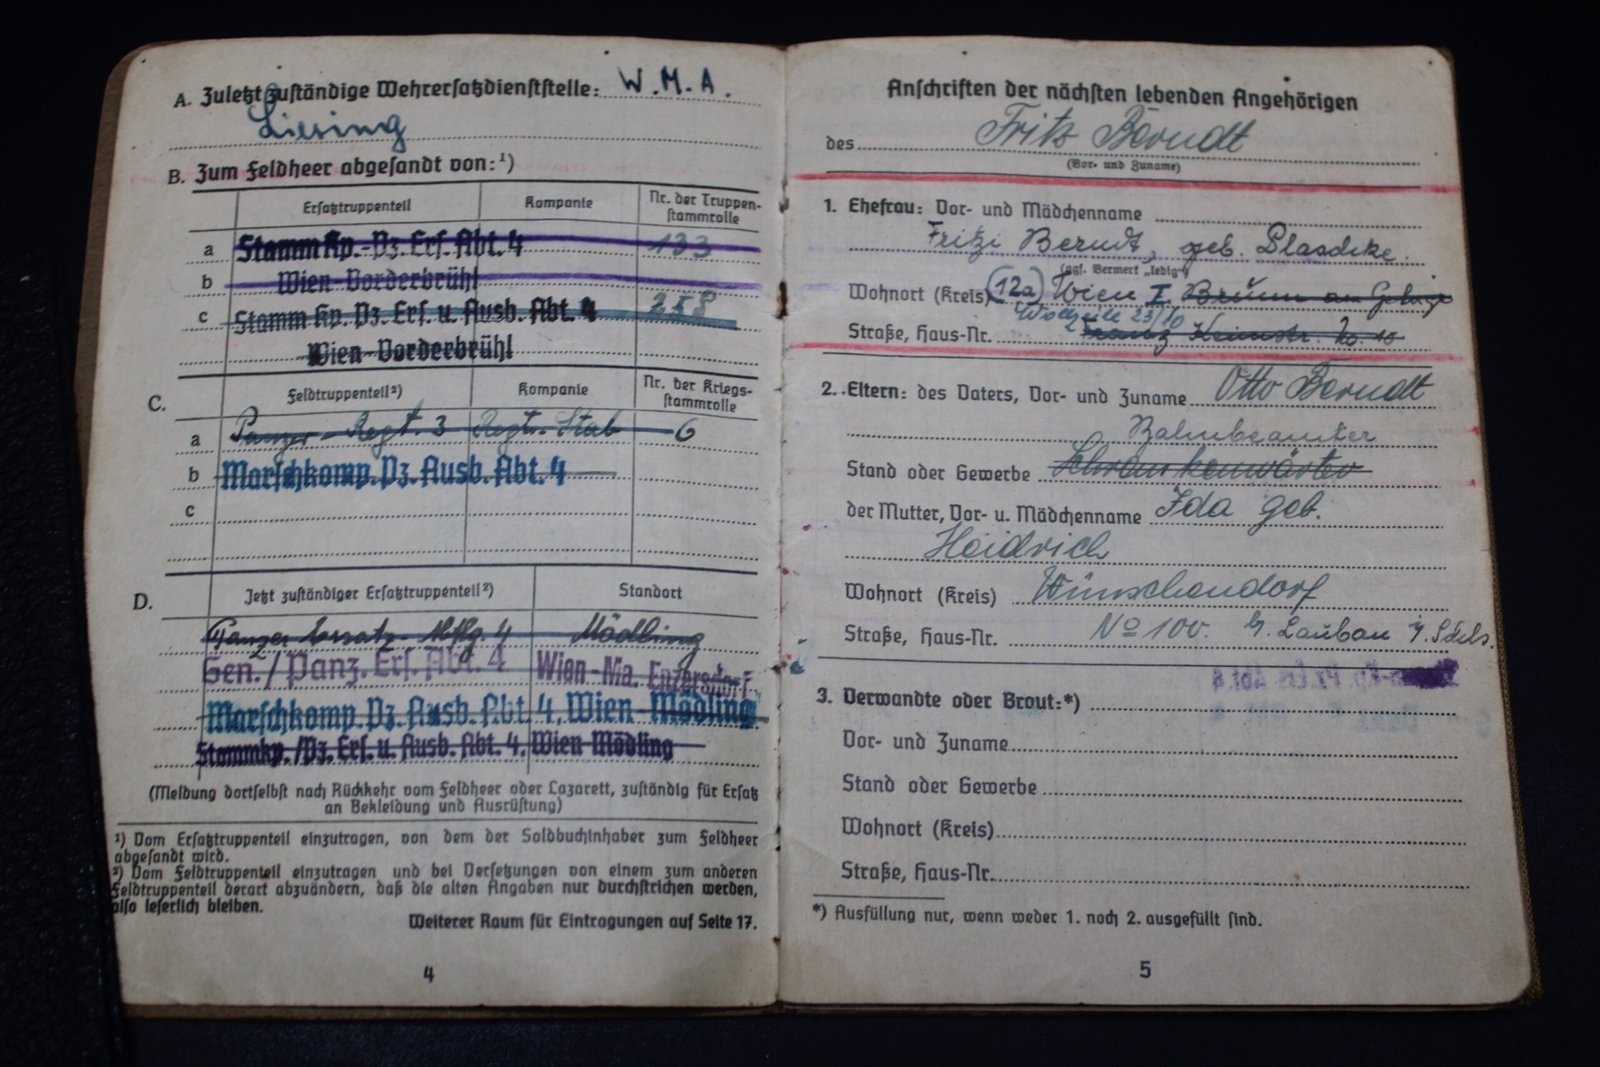 A. Zuletzt zuständige Wehrersatzdienststelle: W.M.A.
Liesing
B. Zum Feldheer abgesandt von:¹)
Ersatztruppenteil Kompanie Nr. der Truppen-
stammrolle
a Stamm Kp.-Pz. Ers. Abt. 4 133
b Wien-Vorderbrühl
c Stamm Kp. Pz. Ers. u. Ausb. Abt. 4
Wien-Vorderbrühl
C. Feldtruppenteil²) Kompanie Nr. der Kriegs-
stammrolle
a Panzer-Regt. 3 Regts. Stab 6
b Marschkomp. Pz. Ausb. Abt. 4
c
D. Jetzt zuständiger Ersatztruppenteil²) Standort
Panzer Ersatz-Abtlg. 4 Mödling
Gen./Panz. Ers. Abt. 4 Wien-Ma. Enzersdorf
Marschkomp. Pz. Ausb. Abt. 4, Wien-Mödling
Stammkp./Pz. Ers. u. Ausb. Abt. 4, Wien Mödling
(Meldung dortselbst nach Rückkehr vom Feldheer oder Lazarett, zuständig für Ersatz
an Bekleidung und Ausrüstung)
¹) Vom Ersatztruppenteil einzutragen, von dem der Soldbuchinhaber zum Feldheer
abgesandt wird.
²) Vom Feldtruppenteil einzutragen und bei Versetzungen von einem zum anderen
Feldtruppenteil derart abzuändern, daß die alten Angaben nur durchstrichen werden,
also leserlich bleiben.
Weiterer Raum für Eintragungen auf Seite 17.
4
Anschriften der nächsten lebenden Angehörigen
des Fritz Berndt
(Vor- und Zuname)
1. Ehefrau: Vor- und Mädchenname
Fritzi Berndt, geb. Blaschke.
(ggf. Vermerk „ledig")
Wohnort (Kreis) (12a) Wien I. Brünn am Gebirge
Wollzeile 23/10
Straße, Haus-Nr. Franz Keimstr. No 10
2. Eltern: des Vaters, Vor- und Zuname Otto Berndt
Bahnbeamter
Stand oder Gewerbe Schrankenwärter
der Mutter, Vor- u. Mädchenname Ida geb.
Heidrich
Wohnort (Kreis) Wünschendorf
Straße, Haus-Nr. No 100. Lauban
3. Verwandte oder Braut:*)
Vor- und Zuname
Stand oder Gewerbe
Wohnort (Kreis)
Straße, Haus-Nr.
*) Ausfüllung nur, wenn weder 1. noch 2. ausgefüllt sind.
5